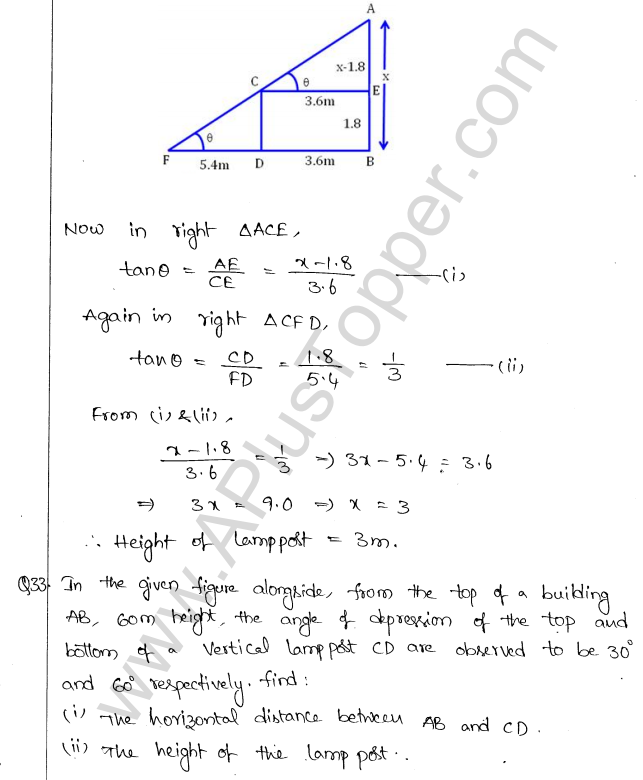 A
x-1.8
x
C
θ
E
3.6m
1.8
θ
F
5.4m
D
3.6m
B
Now in right ΔACE,
tanθ = AE/CE = x-1.8/3.6 —(i)
Again in right ΔCFD,
tanθ = CD/FD = 1.8/5.4 = 1/3 —(ii)
From (i) & (ii),
x-1.8/3.6 = 1/3 => 3x - 5.4 = 3.6
=> 3x = 9.0 => x = 3
∴ Height of lamp post = 3m.
Q33. In the given figure alongside, from the top of a building
AB, 60m height, the angle of depression of the top and
bottom of a vertical lamp post CD are observed to be 30°
and 60° respectively. find:
(i) The horizontal distance between AB and CD.
(ii) The height of the lamp post.
www.APlusTopper.com